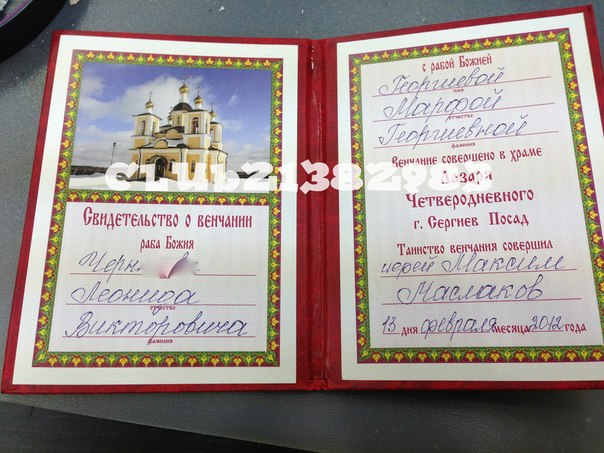 club21382989
Свидетельство о венчании
раба Божия
Черн
имя
Леонида
отчество
Викторовича
фамилия
с рабой Божией
Георгиевой
имя
Марфой
отчество
Георгиевной
фамилия
Венчание совершено в храме
Лазаря
Четверодневного
г. Сергиев Посад
Таинство венчания совершил
иерей Максим
Маслаков
13 дня февраля месяца 2012 года